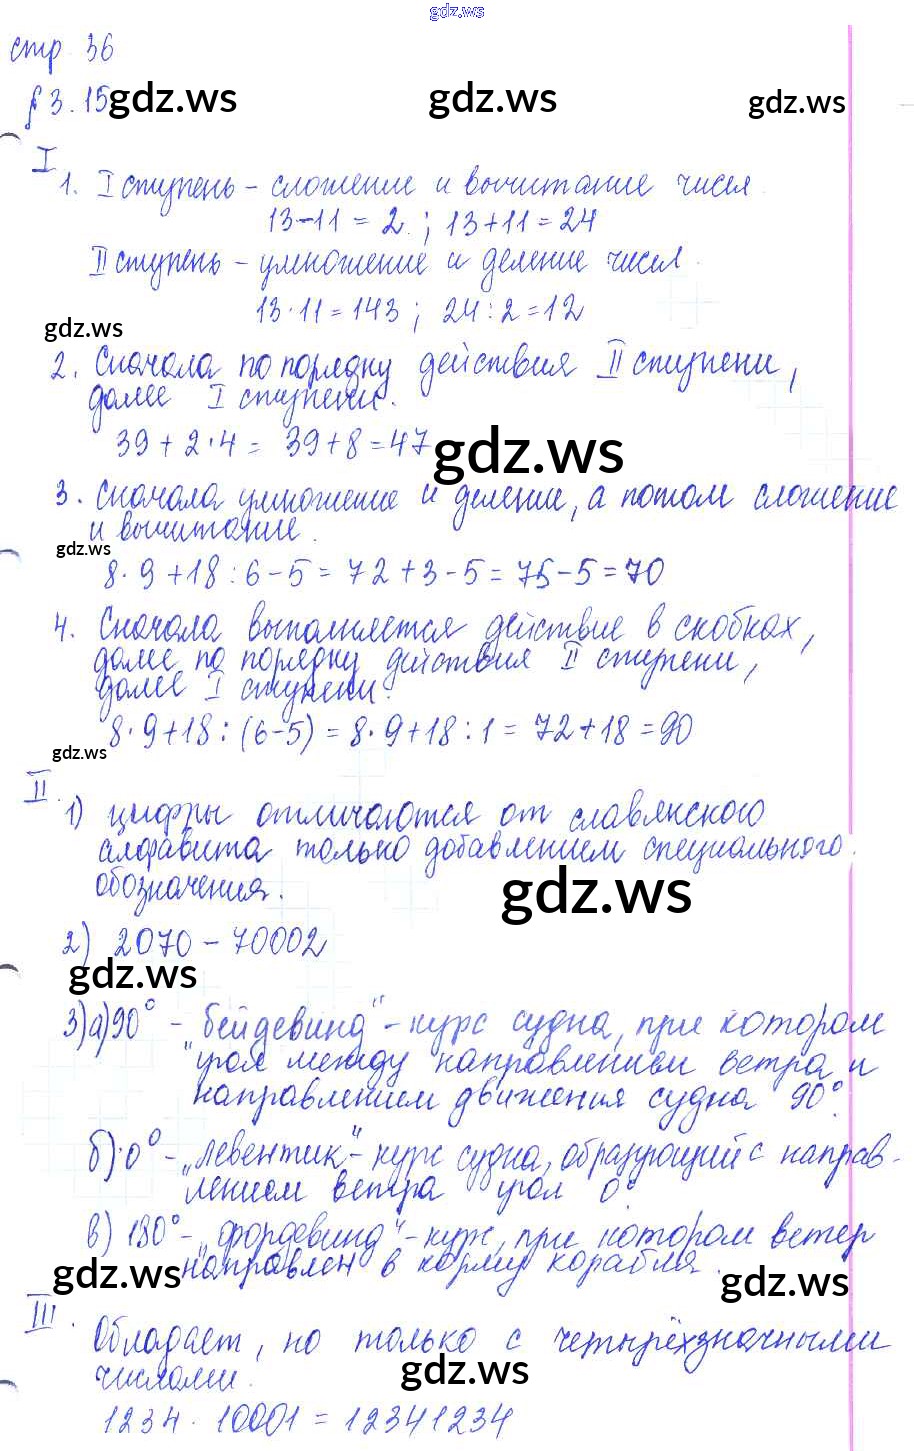 gdz.ws
стр. 36
§ 3.15 gdz.ws gdz.ws gdz.ws
I
1. I ступень – сложение и вычитание чисел.
13-11 = 2. ; 13+11 = 24
II ступень – умножение и деление чисел.
13·11 = 143 ; 24:2 = 12
gdz.ws
2. Сначала по порядку действия II ступени,
далее I ступени.
39 + 2·4 = 39+8 = 47
gdz.ws
3. Сначала умножение и деление, а потом сложение
и вычитание.
gdz.ws
8·9+18:6-5 = 72+3-5 = 75-5 = 70
4. Сначала выполняется действие в скобках,
далее по порядку действия II ступени,
далее I ступени.
8·9+18:(6-5) = 8·9+18:1 = 72+18 = 90
gdz.ws
II.
1) цифры отличаются от славянского
алфавита только добавлением специального
обозначения.
gdz.ws
2) 2070 – 70002
gdz.ws
3) а) 90° – „бейдевинд" – курс судна, при котором
угол между направлением ветра и
направлением движения судна 90°.
б) 0° – „левентик" – курс судна, образующий с направ-
лением ветра угол 0°.
в) 180° – „фордевинд" – курс, при котором ветер
gdz.ws направлен в корму корабля. gdz.ws
III.
Обладает, но только с четырёхзначными
числами. gdz.ws
1234 · 10001 = 12341234